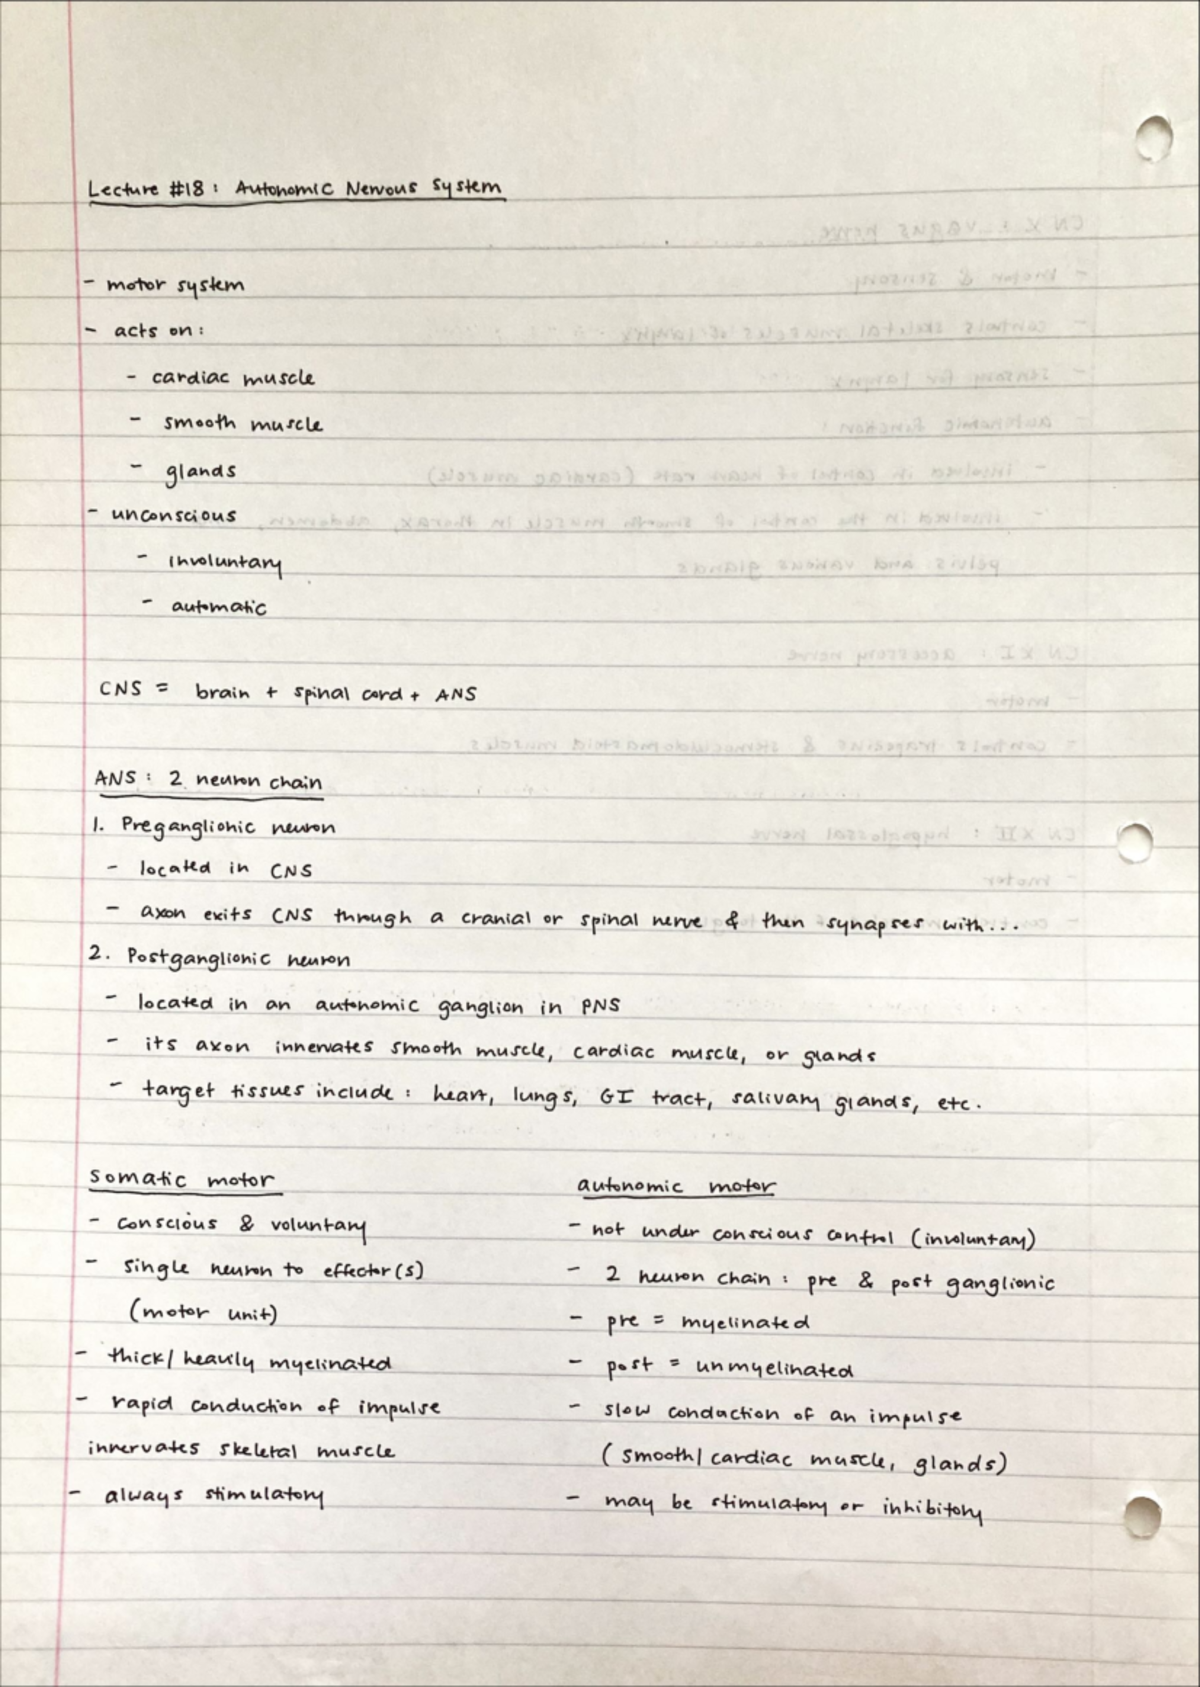 Lecture #18: Autonomic Nervous System
- motor system
- acts on:
- cardiac muscle
- smooth muscle
- glands
- unconscious
- involuntary
- automatic
CNS = brain + spinal cord + ANS
ANS: 2 neuron chain
1. Preganglionic neuron
- located in CNS
- axon exits CNS through a cranial or spinal nerve & then synapses with...
2. Postganglionic neuron
- located in an autonomic ganglion in PNS
- its axon innervates smooth muscle, cardiac muscle, or glands
- target tissues include: heart, lungs, GI tract, salivary glands, etc.
somatic motor
- conscious & voluntary
- single neuron to effector(s)
(motor unit)
- thick/heavily myelinated
- rapid conduction of impulse
innervates skeletal muscle
- always stimulatory
autonomic motor
- not under conscious control (involuntary)
- 2 neuron chain: pre & post ganglionic
- pre = myelinated
- post = unmyelinated
- slow conduction of an impulse
(smooth/cardiac muscle, glands)
- may be stimulatory or inhibitory